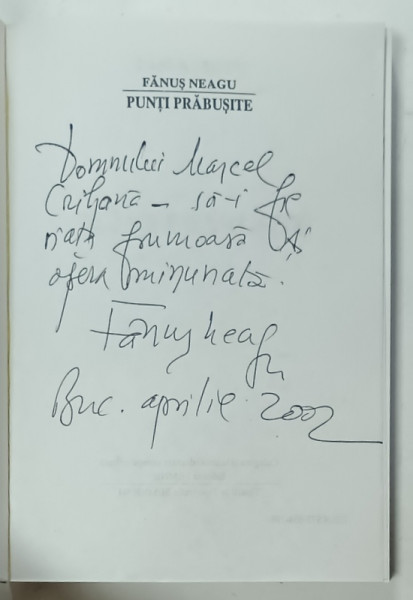 FĂNUȘ NEAGU
PUNȚI PRĂBUȘITE
Domnului Marcel
Crihană – să-i fie
viața frumoasă și
opera minunată.
Fănuș Neagu
Buc. aprilie 2002